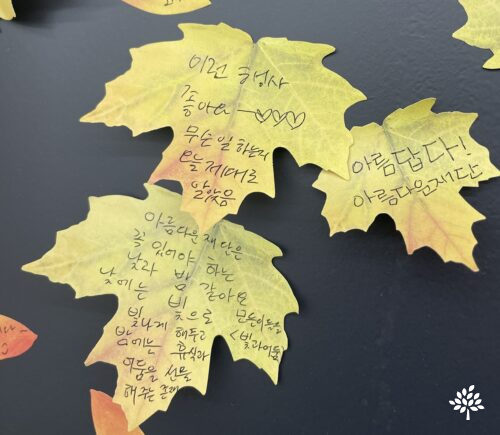 이런 행사
좋아요
무슨 일 하는지
오늘 제대로
알았음
아름답다!
아름다운재단
아름다운 재단은
꼭 있어야 하는
낮과 밤 같아요
낮에는 빛으로 모든이들을
빛나게 해주고 <빛과 어둠>
밤에는 휴식과
어둠을 선물
해주는 존재